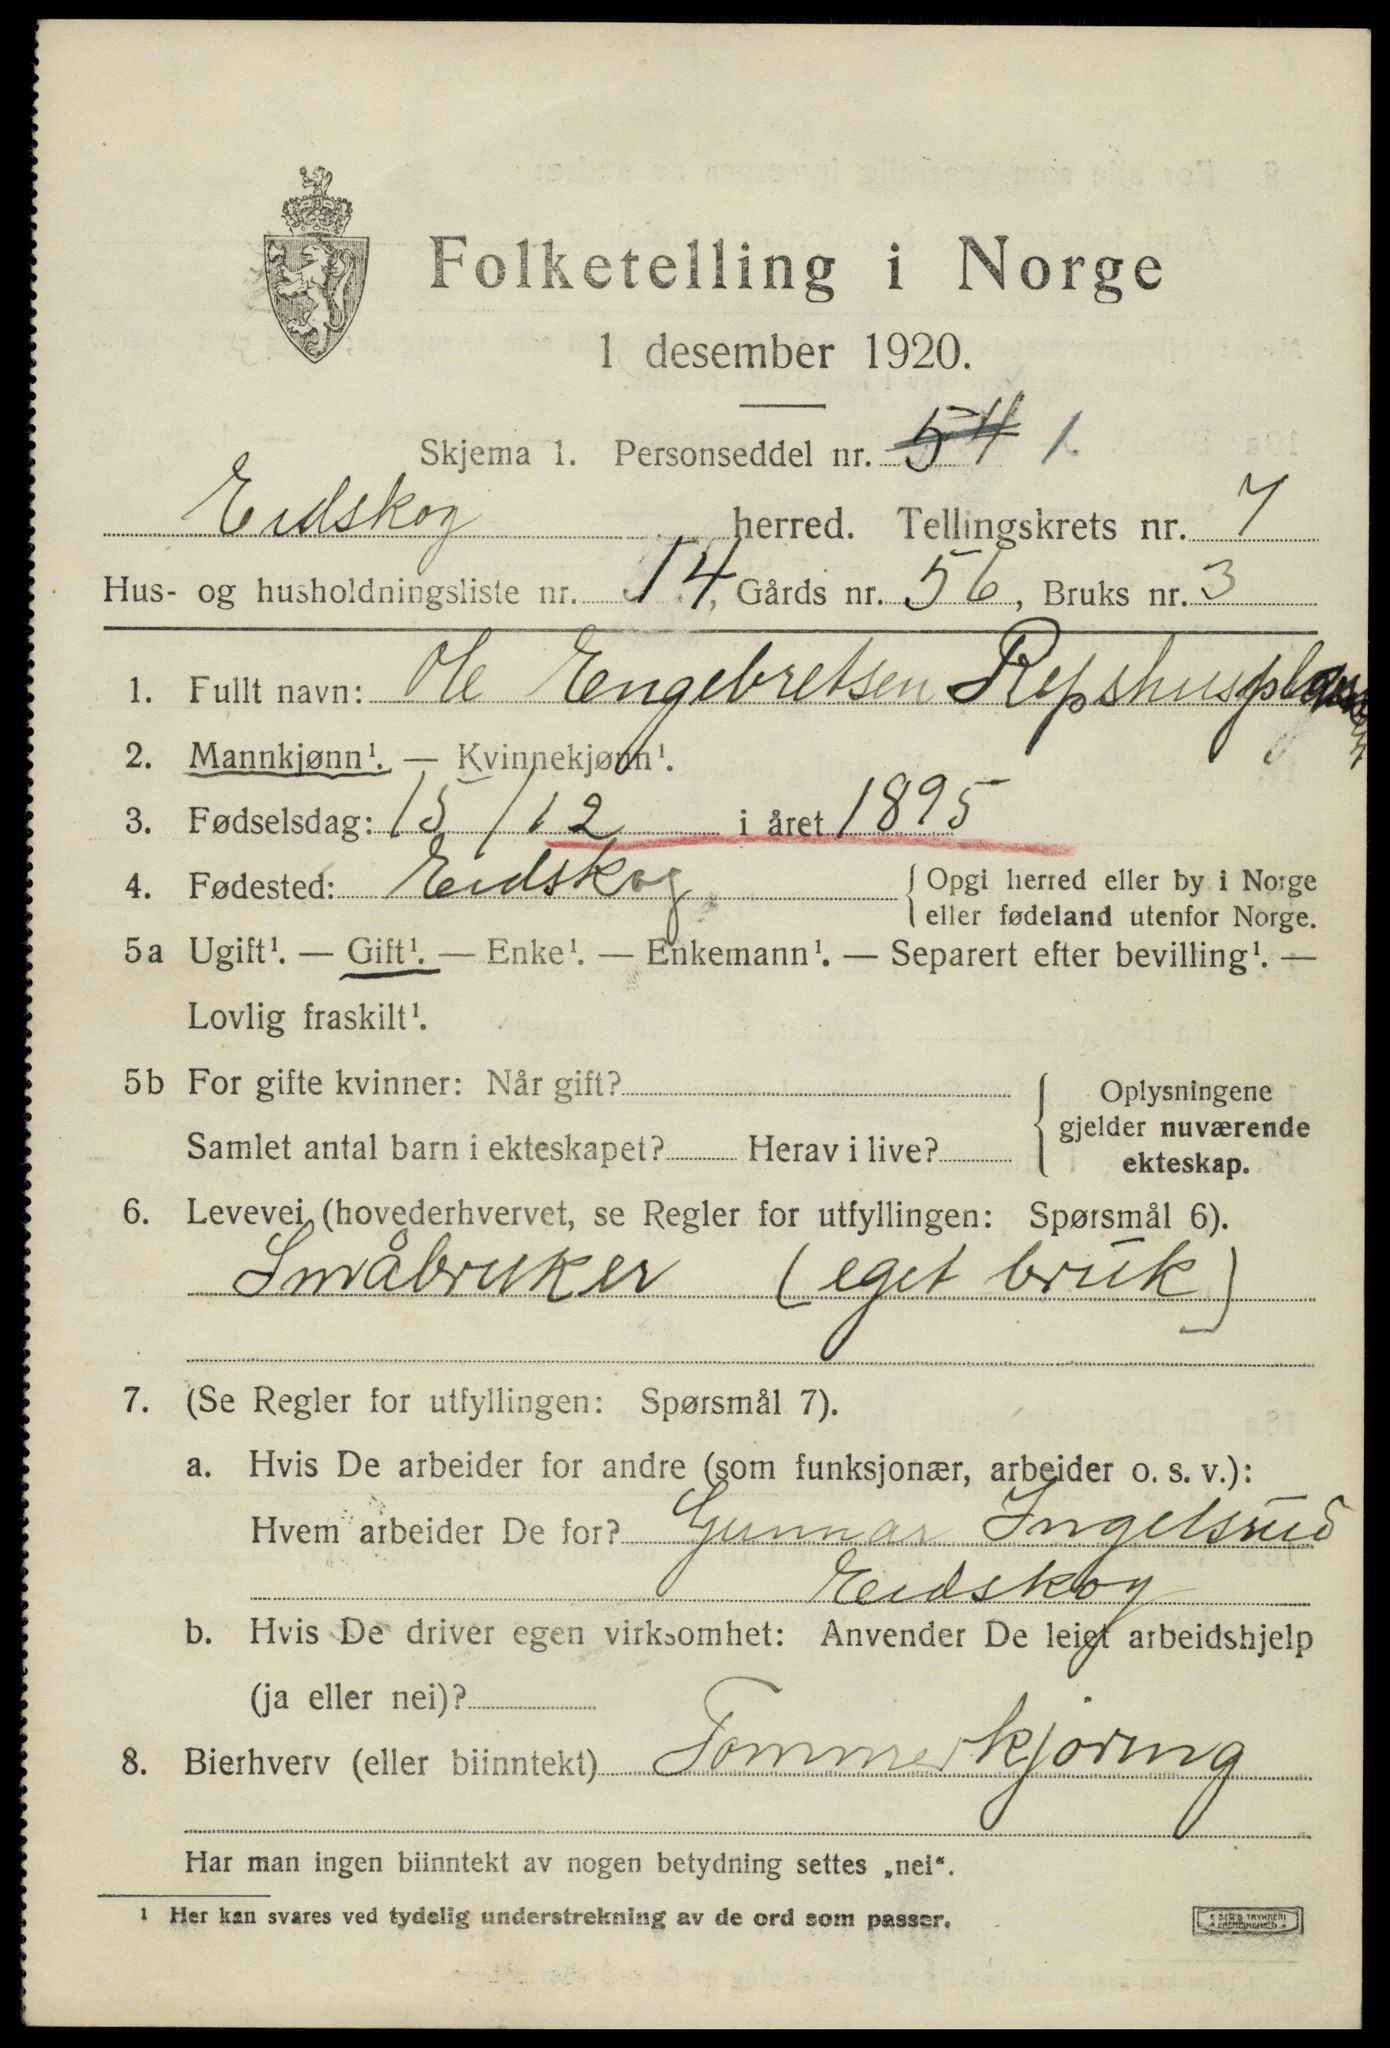 Folketelling i Norge
1 desember 1920.
Skjema 1. Personseddel nr. 54 1.
Eidskog herred. Tellingskrets nr. 7
Hus- og husholdningsliste nr. 14, Gårds nr. 56, Bruks nr. 3
1. Fullt navn: Ole Engebretsen
2. Mannkjønn¹. — Kvinnekjønn¹.
3. Fødselsdag: 15/12 i året 1895
4. Fødested: Eidskog { Opgi herred eller by i Norge
eller fødeland utenfor Norge.
5a Ugift¹. — Gift¹. — Enke¹. — Enkemann¹. — Separert efter bevilling¹. —
Lovlig fraskilt¹.
5b For gifte kvinner: Når gift? { Oplysningene
gjelder nuværende
Samlet antal barn i ekteskapet? Herav i live?
ekteskap.
6. Levevei (hovederhvervet, se Regler for utfyllingen: Spørsmål 6).
Småbruker (eget bruk)
7. (Se Regler for utfyllingen: Spørsmål 7).
a. Hvis De arbeider for andre (som funksjonær, arbeider o. s. v.):
Hvem arbeider De for? Gunnar Ingelsrud
Eidskog
b. Hvis De driver egen virksomhet: Anvender De leiet arbeidshjelp
(ja eller nei)?
8. Bierhverv (eller biinntekt) Tømmerkjøring
Har man ingen biinntekt av nogen betydning settes „nei“.
¹ Her kan svares ved tydelig understrekning av de ord som passer.